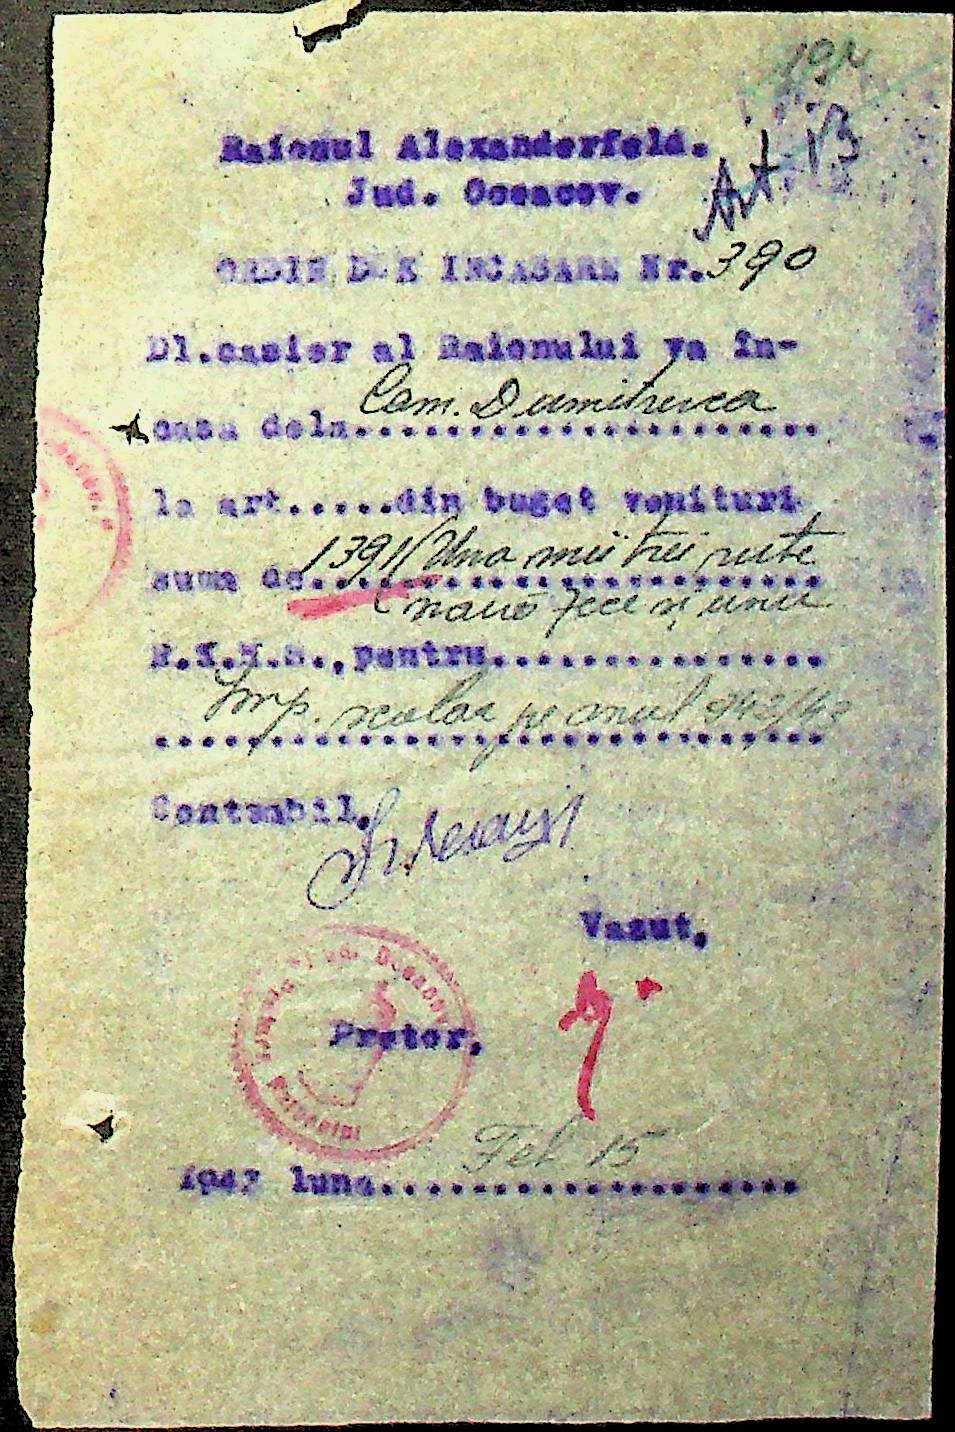 194
Art. 13
Raionul Alexanderfeld.
Jud. Oceacov.
ORDIN DE INCASARE Nr. 390
Dl.casier al Raionului va în-
casa dela Com. Dumitrica
la art.....din buget venituri
suma de 1391 (Una mii trei sute
nouă zeci și unu
R.K.K.S.,pentru
Imp. scolar pe anul 942/43
Contabil,
Vazut,
Pretor,
1943 luna Feb 15